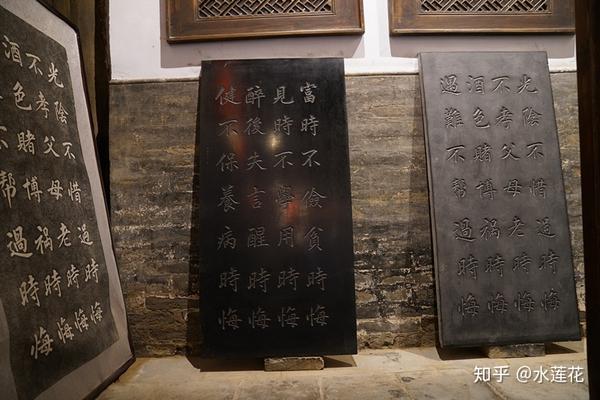 光陰不惜過時悔
不孝父母老時悔
酒色賭博禍時悔
不帮過時悔
富時不儉貧時悔
見時不學用時悔
醉後失言醒時悔
健不保養病時悔
光陰不惜過時悔
不孝父母老時悔
酒色賭博禍時悔
過難不帮過時悔
知乎 @水莲花